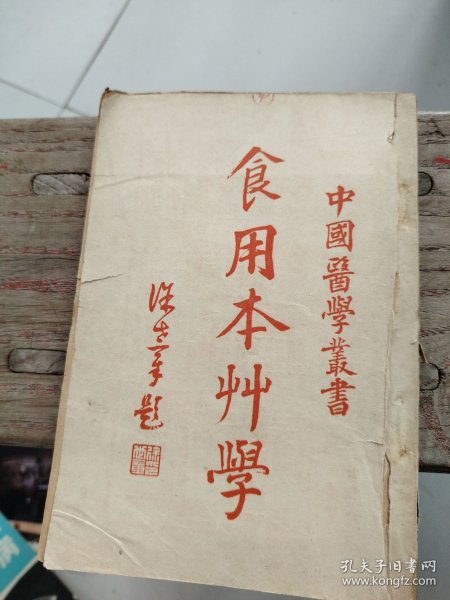 中國醫學叢書
食用本艸學
徐世章題
孔夫子旧书网
www.kongfz.com